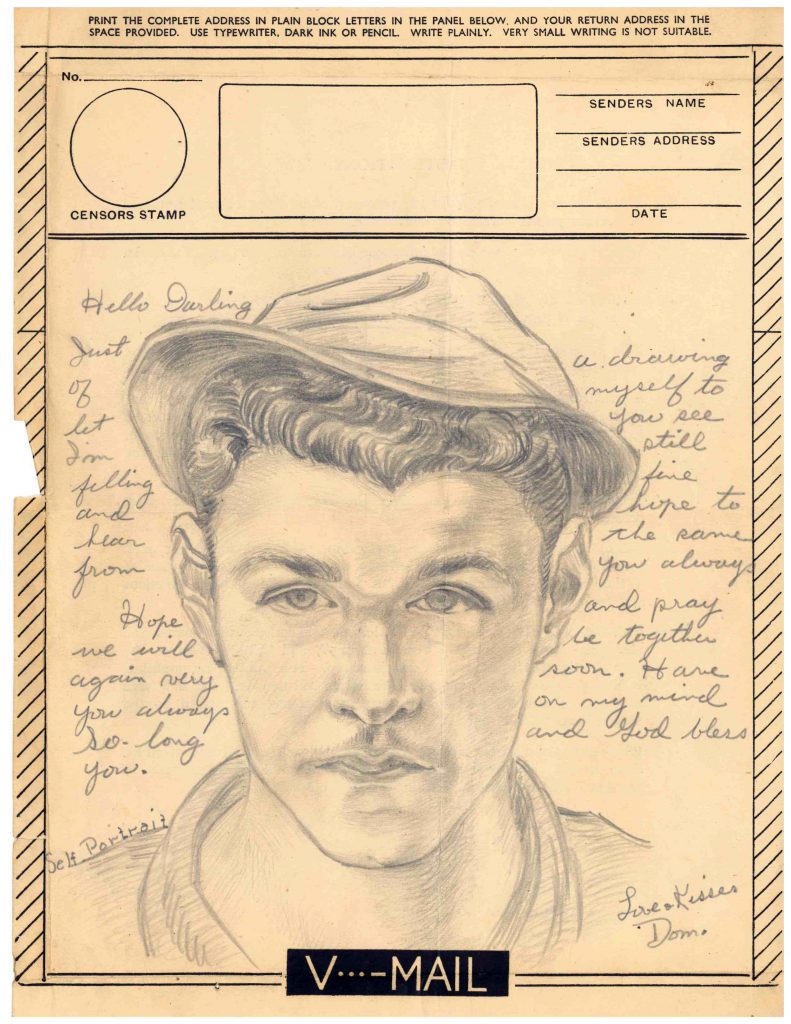 PRINT THE COMPLETE ADDRESS IN PLAIN BLOCK LETTERS IN THE PANEL BELOW, AND YOUR RETURN ADDRESS IN THE
SPACE PROVIDED. USE TYPEWRITER, DARK INK OR PENCIL. WRITE PLAINLY. VERY SMALL WRITING IS NOT SUITABLE.
No.
CENSORS STAMP
SENDERS NAME
SENDERS ADDRESS
DATE
Hello Darling
Just a drawing
of myself to
let you see
I'm still
filling fine
and hope to
hear the same
from you always
Hope and pray
we will be together
again very soon. Have
you always on my mind
So-long and God bless
you.
Self Portrait
Love & Kisses
Dom.
V···-MAIL